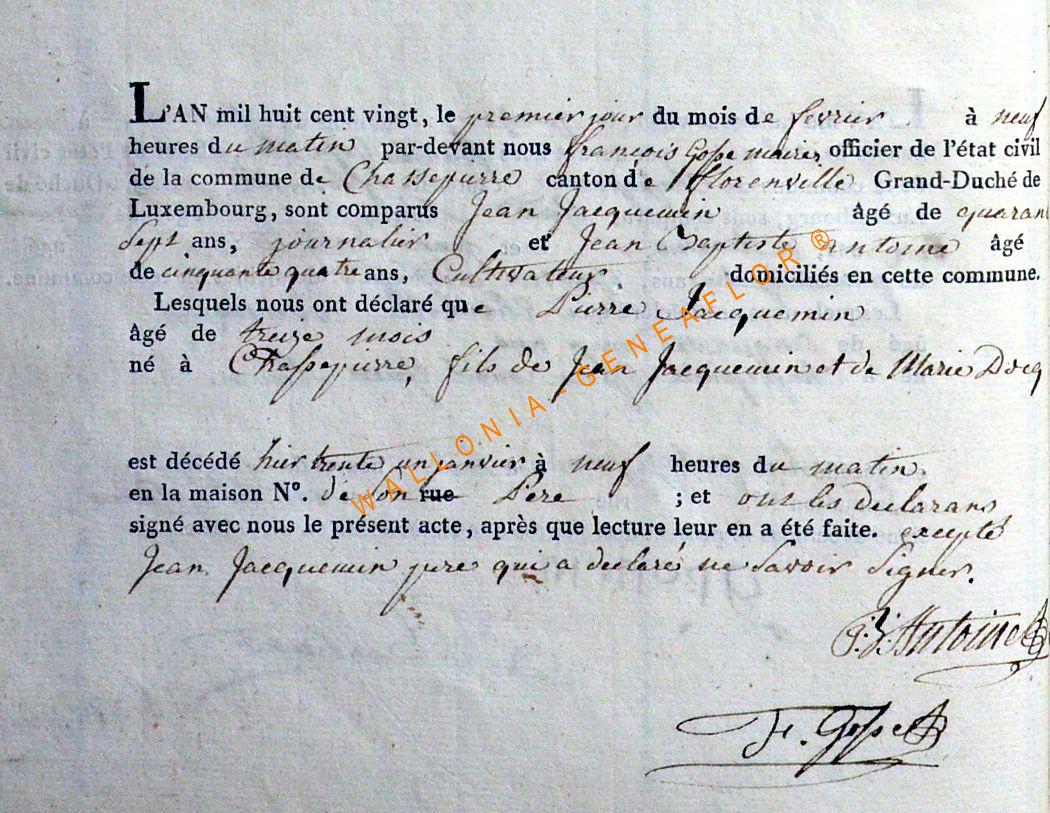 L'AN mil huit cent vingt, le premier jour du mois de fevrier à neuf
heures du matin par-devant nous françois Gosse maire, officier de l'état civil
de la commune de Chassepierre canton de florenville Grand-Duché de
Luxembourg, sont comparus Jean Jacquemin âgé de quaran
Sept ans, journalier et Jean Baptiste antoine âgé
de cinquante quatre ans, Cultivateur domiciliés en cette commune.
Lesquels nous ont déclaré que Pierre Jacquemin
âgé de treize mois
né à Chassepierre, fils de Jean Jacquemin et de Marie Docq
est décédé hier trente un janvier à neuf heures du matin.
en la maison N°. de son rue Pere ; et ont les declarans
signé avec nous le présent acte, après que lecture leur en a été faite. excepté
Jean Jacquemin pere qui a declaré ne Savoir Signer.
J:B: Antoine
F. Gosse
WALLONIA-GENEAFLOR®